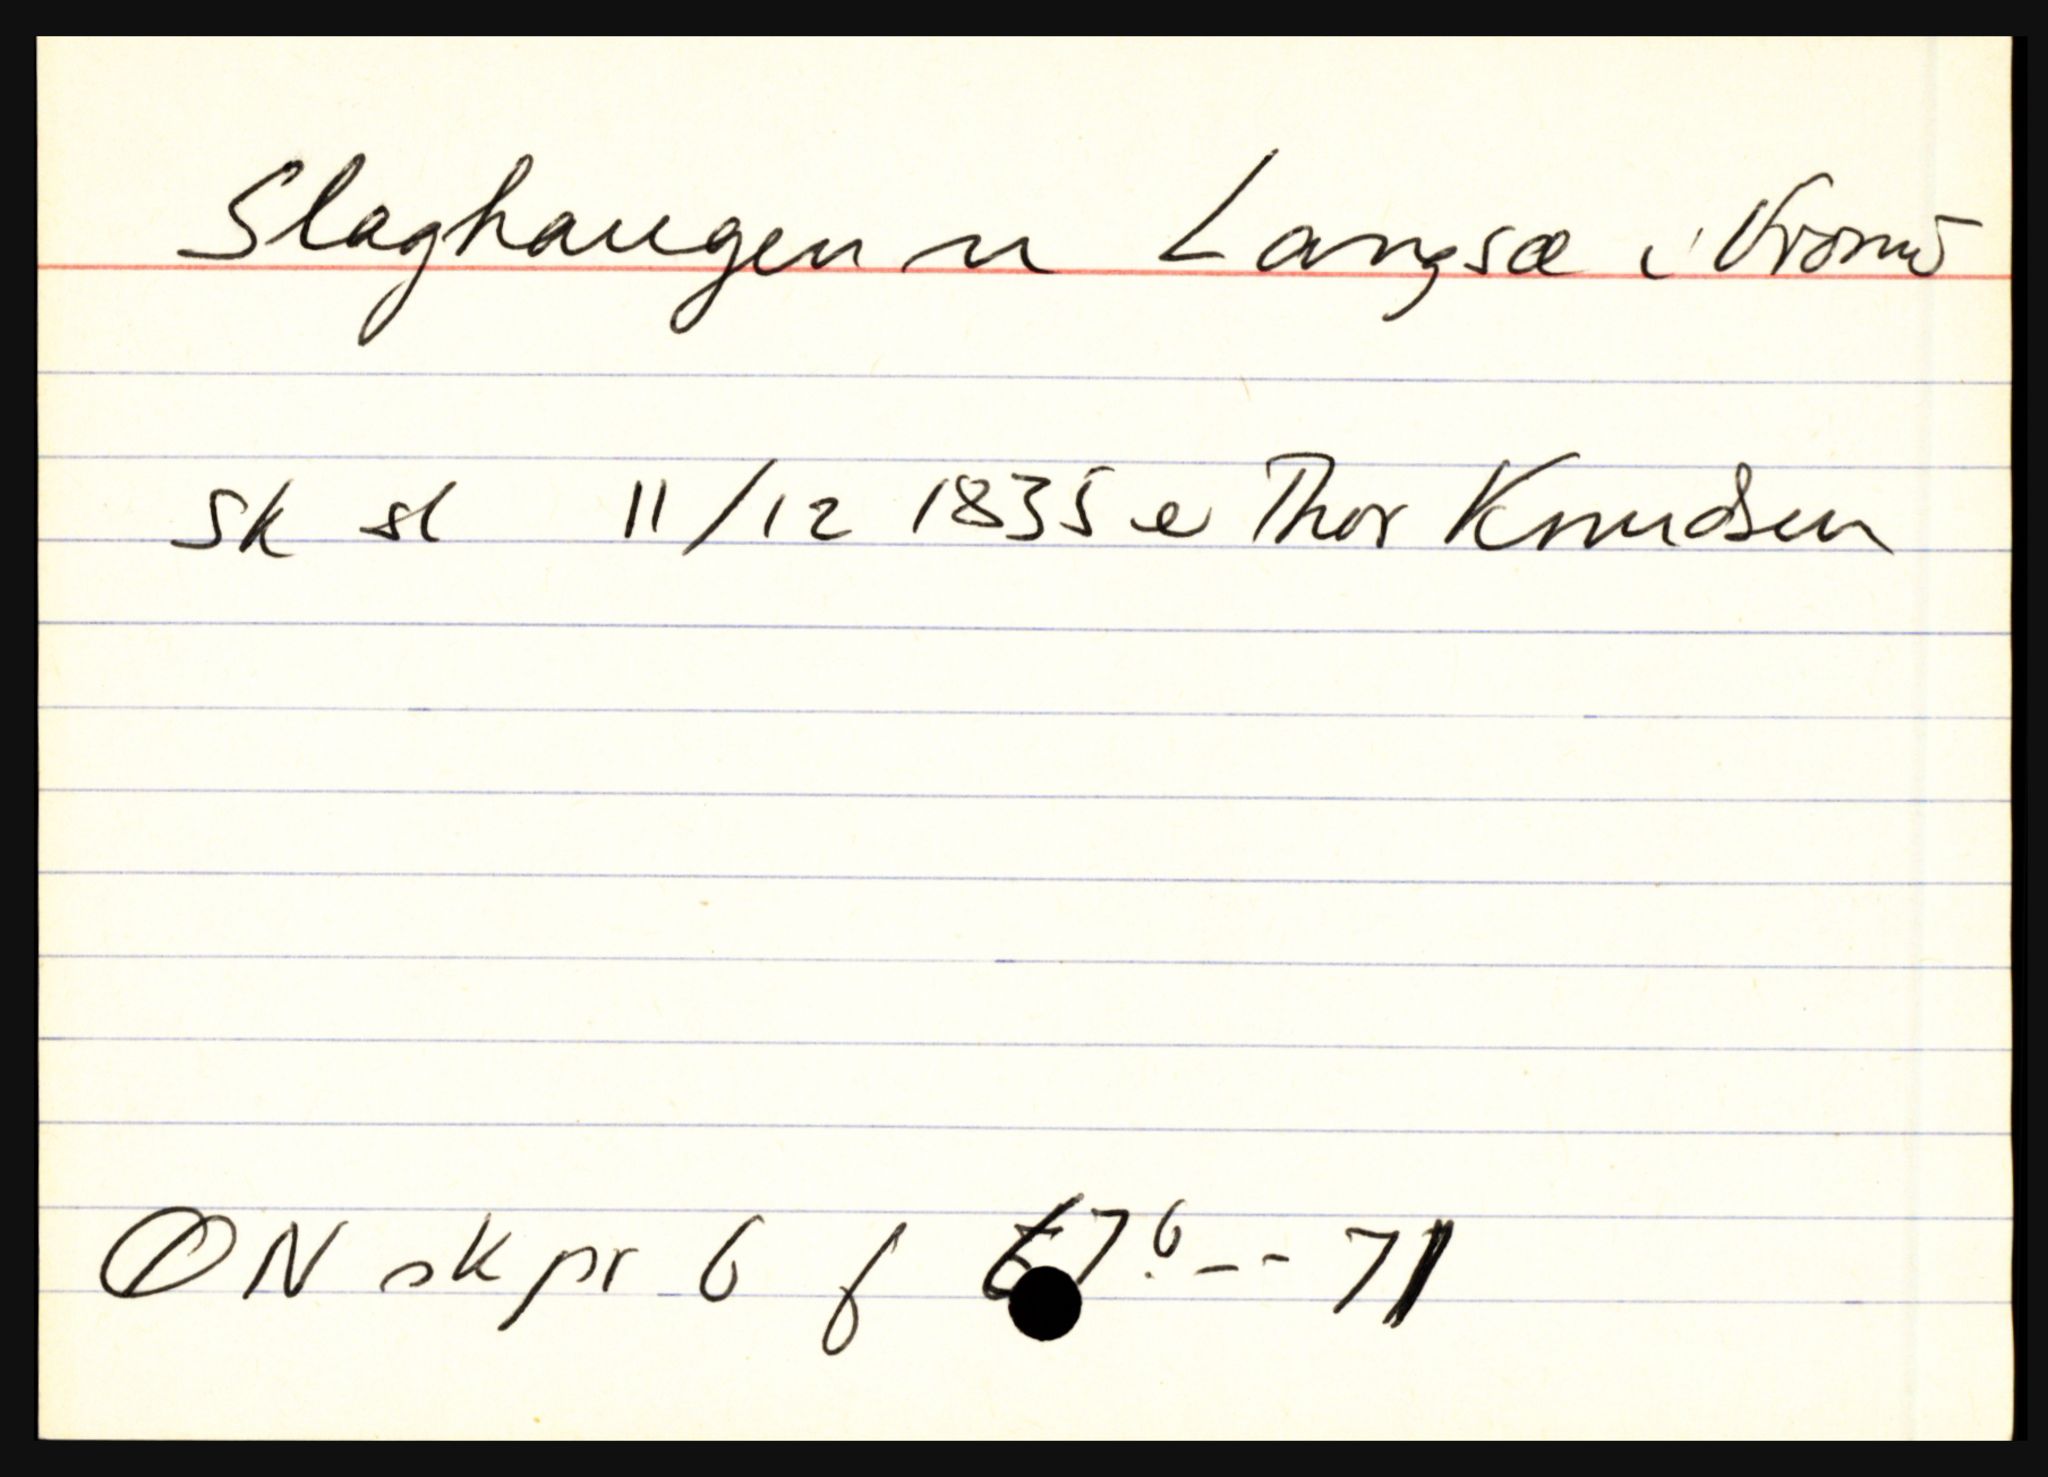 Slaghaugen u Langsæ i Tromö
sk sl 11/12 1835 e Thor Knudsen
ØN skpr 6 f 67 6 -- 71